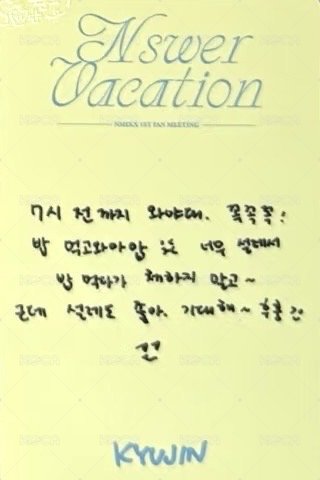 NSwer
Vacation
NMIXX 1ST FAN MEETING
7시 전까지 와야대. 꼭꼭꼭!
밥 먹고와아암 너무 설레서
밥 먹다가 체하지 말고~
근데 설레도 좋아. 기대해~ 후훗
KYUJIN